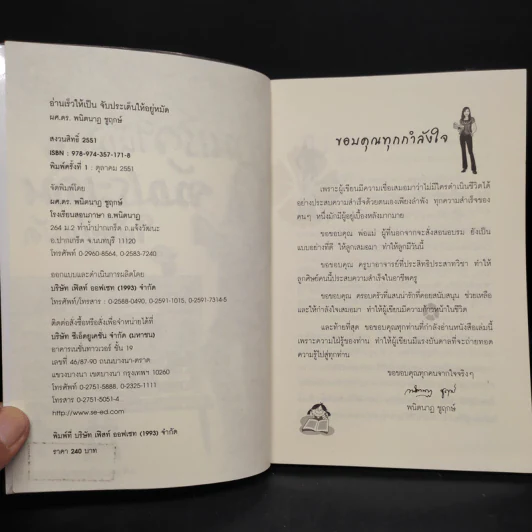 อ่านเร็วให้เป็น จับประเด็นให้อยู่หมัด
ผศ.ดร. พนิตนาฏ ชูฤกษ์
สงวนสิทธิ์ 2551
ISBN : 978-974-357-171-8
พิมพ์ครั้งที่ 1 : ตุลาคม 2551
จัดพิมพ์โดย
ผศ.ดร. พนิตนาฏ ชูฤกษ์
โรงเรียนสอนภาษา อ.พนิตนาฏ
264 ม.2 ท่าน้ำปากเกร็ด ถ.แจ้งวัฒนะ
อ.ปากเกร็ด จ.นนทบุรี 11120
โทรศัพท์ 0-2960-8564, 0-2583-7240
ออกแบบและดำเนินการผลิตโดย
บริษัท เฟิสท์ ออฟเซท (1993) จำกัด
โทรศัพท์/โทรสาร : 0-2588-0490, 0-2591-1015, 0-2591-7314-5
ติดต่อสั่งซื้อหรือส่งเพื่อจำหน่ายได้ที่
บริษัท ซีเอ็ดยูเคชั่น จำกัด (มหาชน)
อาคารเนชั่นทาวเวอร์ ชั้น 19
เลขที่ 46/87-90 ถนนบางนา-ตราด
แขวงบางนา เขตบางนา กรุงเทพฯ 10260
โทรศัพท์ 0-2751-5888, 0-2325-1111
โทรสาร 0-2751-5051-4
http://www.se-ed.com
พิมพ์ที่ บริษัท เฟิสท์ ออฟเซท (1993) จำกัด
ราคา 240 บาท
ขอบคุณทุกกำลังใจ
เพราะผู้เขียนมีความเชื่อเสมอมาว่าไม่มีใครดำเนินชีวิตได้
อย่างประสบความสำเร็จด้วยตนเองเพียงลำพัง ทุกความสำเร็จของ
คนๆ หนึ่งมักมีผู้อยู่เบื้องหลังมากมาย
ขอขอบคุณ พ่อแม่ ผู้ที่นอกจากจะสั่งสอนอบรม ยังเป็น
แบบอย่างที่ดี ให้ลูกเสมอมา ทำให้ลูกมีวันนี้
ขอขอบคุณ ครูบาอาจารย์ที่ประสิทธิประสาทวิชา ทำให้
ลูกศิษย์คนนี้ประสบความสำเร็จในอาชีพครู
ขอขอบคุณ ครอบครัวที่แสนน่ารักที่คอยสนับสนุน ช่วยเหลือ
และให้กำลังใจเสมอมา ทำให้ผู้เขียนมีความก้าวหน้าในชีวิต
และท้ายที่สุด ขอขอบคุณทุกท่านที่กำลังอ่านหนังสือเล่มนี้
เพราะความใฝ่รู้ของท่าน ทำให้ผู้เขียนมีแรงบันดาลที่จะถ่ายทอด
ความรู้ไปสู่ทุกท่าน
ขอขอบคุณทุกคนจากใจจริงๆ
พนิตนาฏ ชูฤกษ์